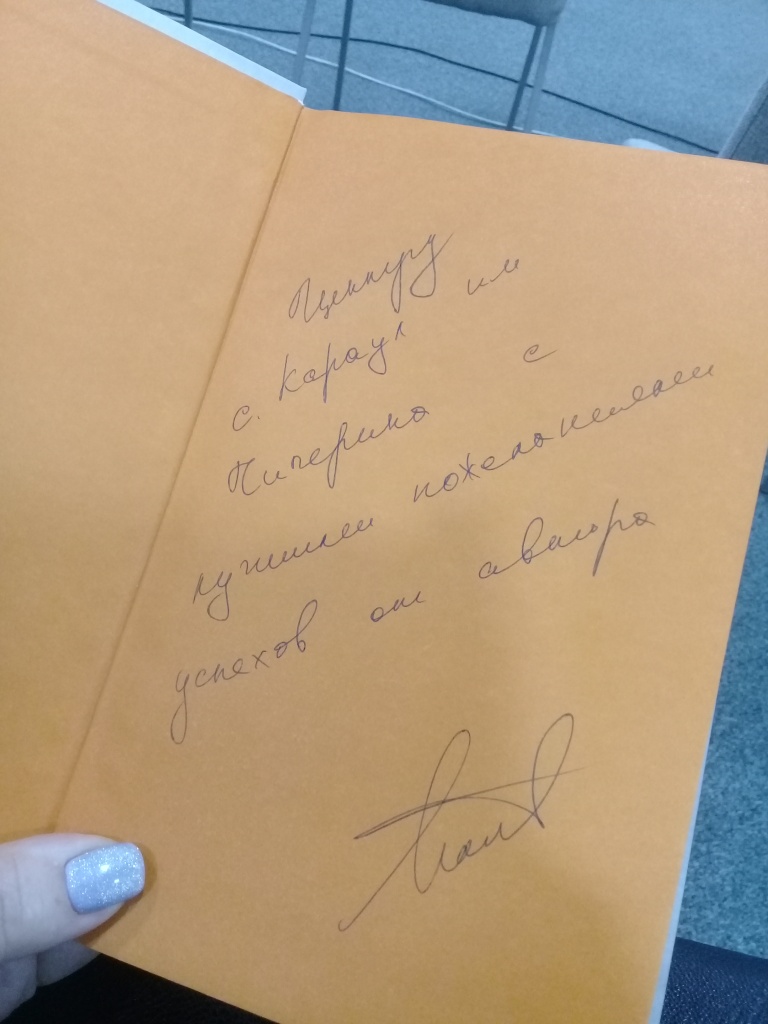 Центру им
с. Караул
Чичерина с
лучшими пожеланиями
успехов от автора